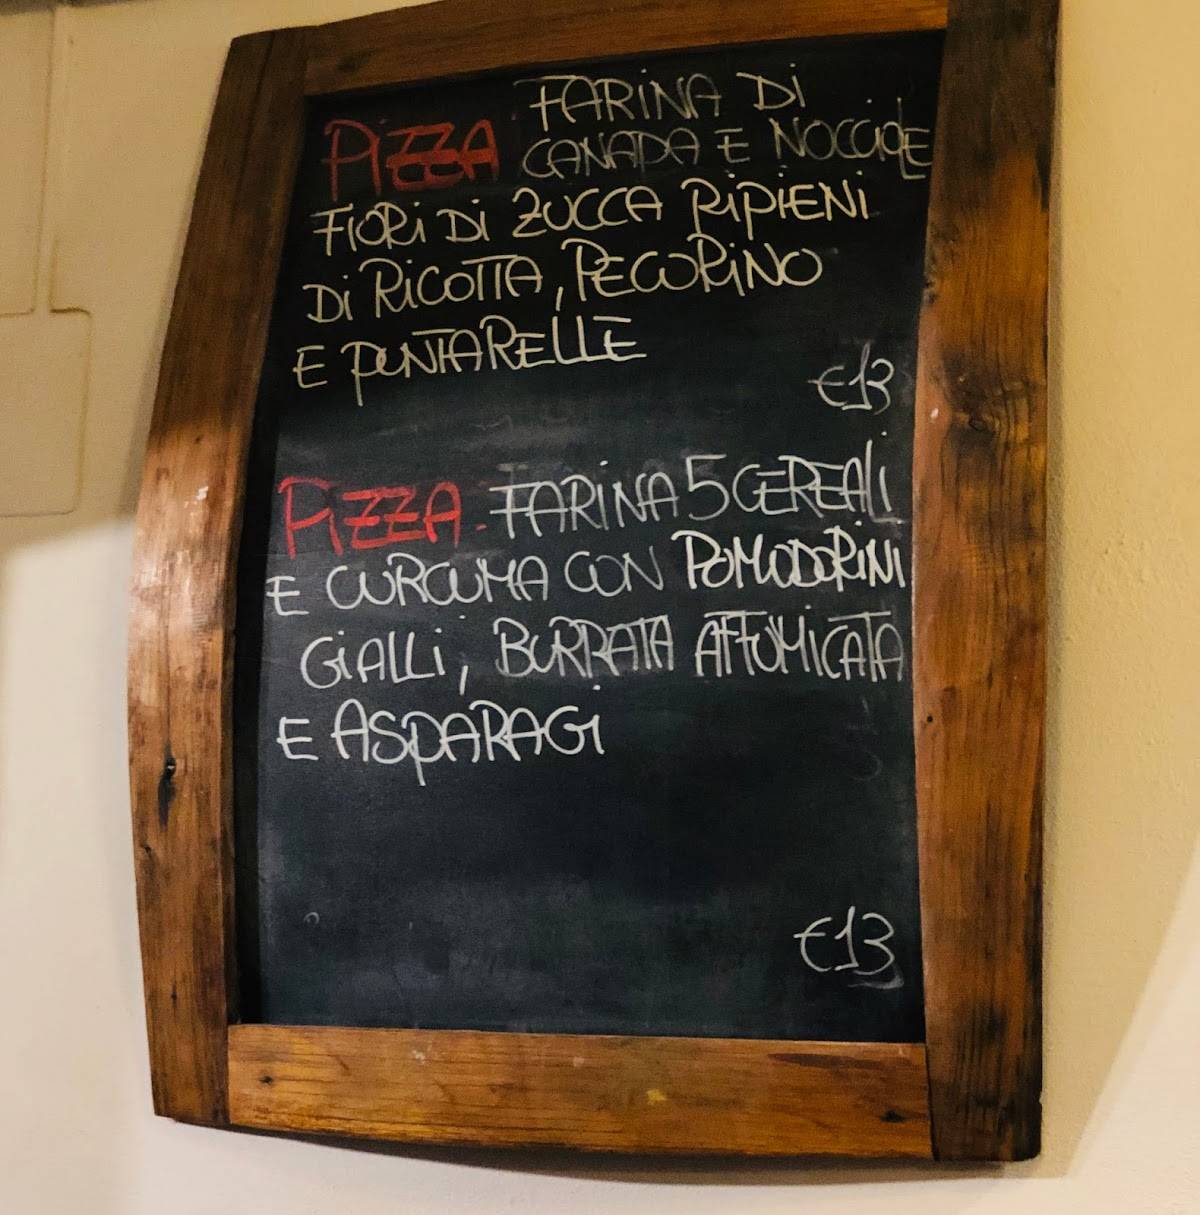 PIZZA FARINA DI
CANADA E NOCCIOLE
FIORI DI ZUCCA RIPIENI
DI RICOTTA, PECORINO
E PUNTARELLE
€13
PIZZA - FARINA 5 CEREALI
E CURCUMA CON POMODORINI
GIALLI, BURRATA AFFUMICATA
E ASPARAGI
€13